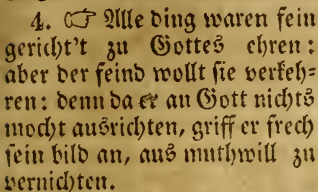 4. ☞ Alle ding waren fein
gericht't zu Gottes ehren:
aber der feind wollt sie verkeh=
ren: denn da er an Gott nichts
mocht ausrichten, griff er frech
sein bild an, aus muthwill zu
vernichten.